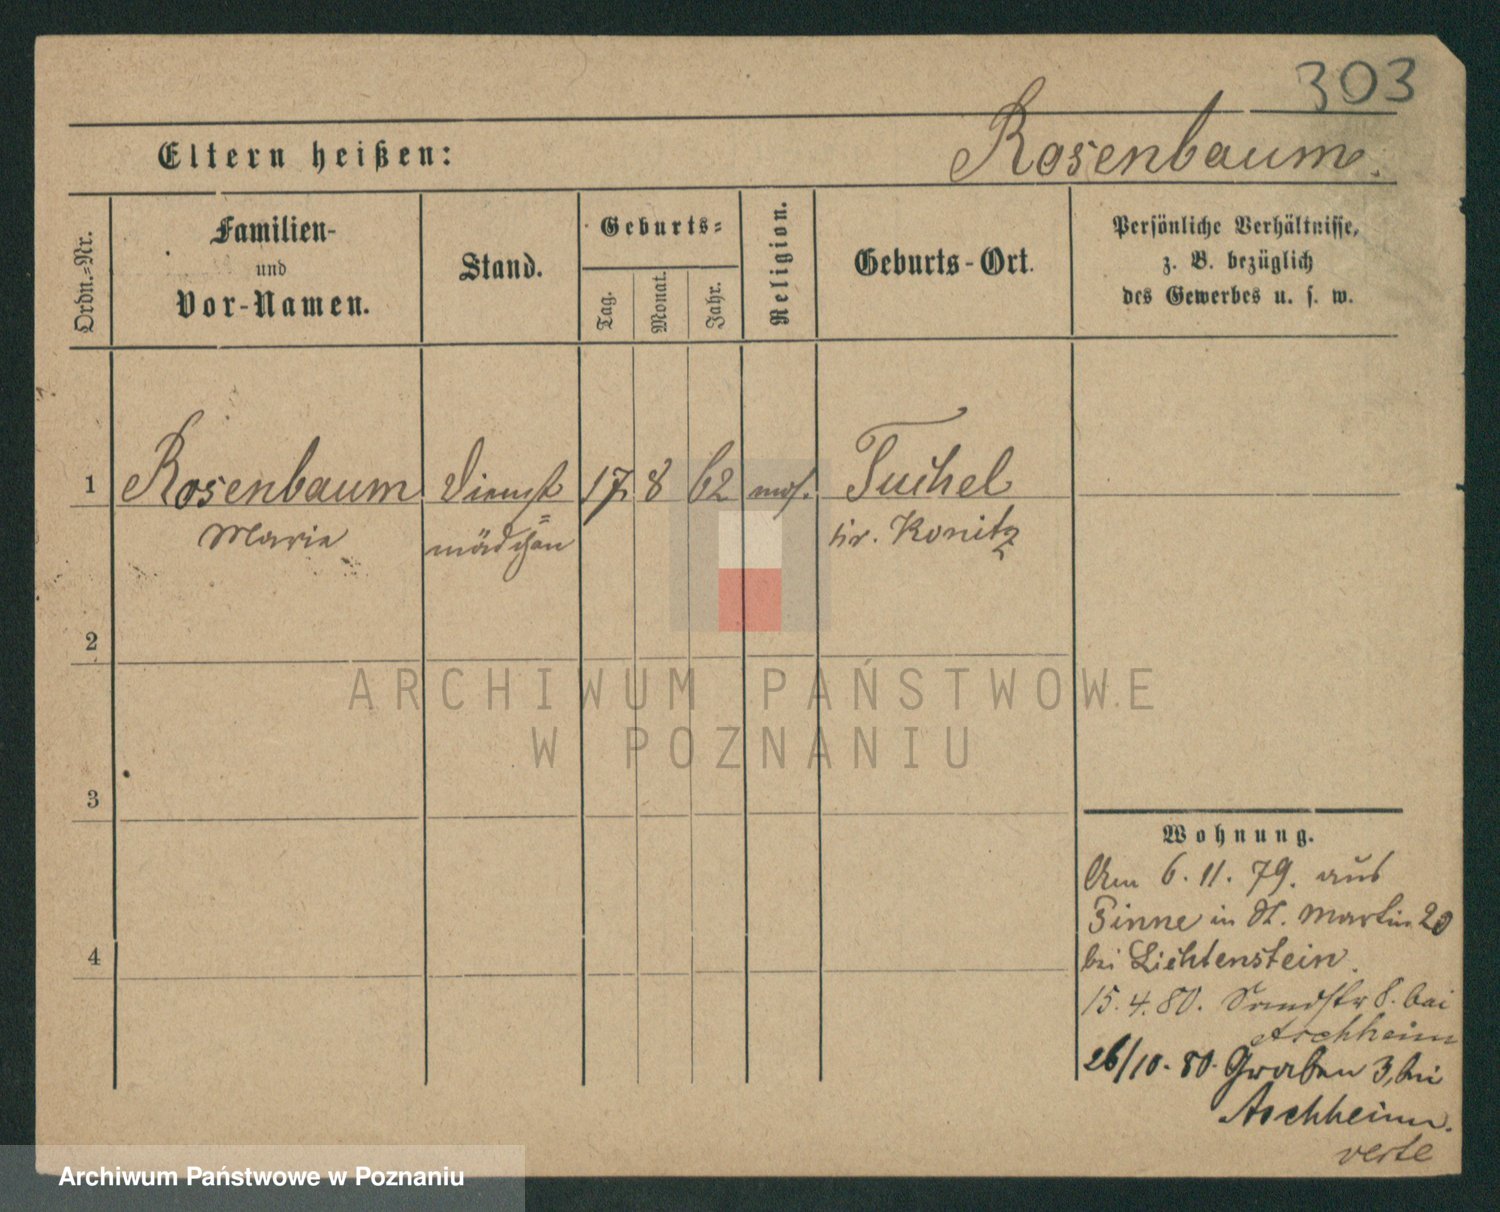 303
Rosenbaum.
Eltern heißen:
Ordn.=Nr.
Familien-
und
Vor-Namen.
Stand.
Geburts=
Tag.
Monat.
Jahr.
Religion.
Geburts-Ort.
Persönliche Verhältnisse,
z. B. bezüglich
des Gewerbes u. s. w.
1 Rosenbaum Dienst 17 8 62 mos. Tuchel
Marie =mädchen Kr. Konitz
2
3
4
Wohnung.
Am 6. 11. 79. aus
Pinne in St. Martin 20
bei Lichtenstein.
15. 4. 80. Sandstr 8. bei
Aschheim
26/10. 80. Graben 3, bei
Aschheim.
verte
ARCHIWUM PAŃSTWOWE
W POZNANIU
Archiwum Państwowe w Poznaniu